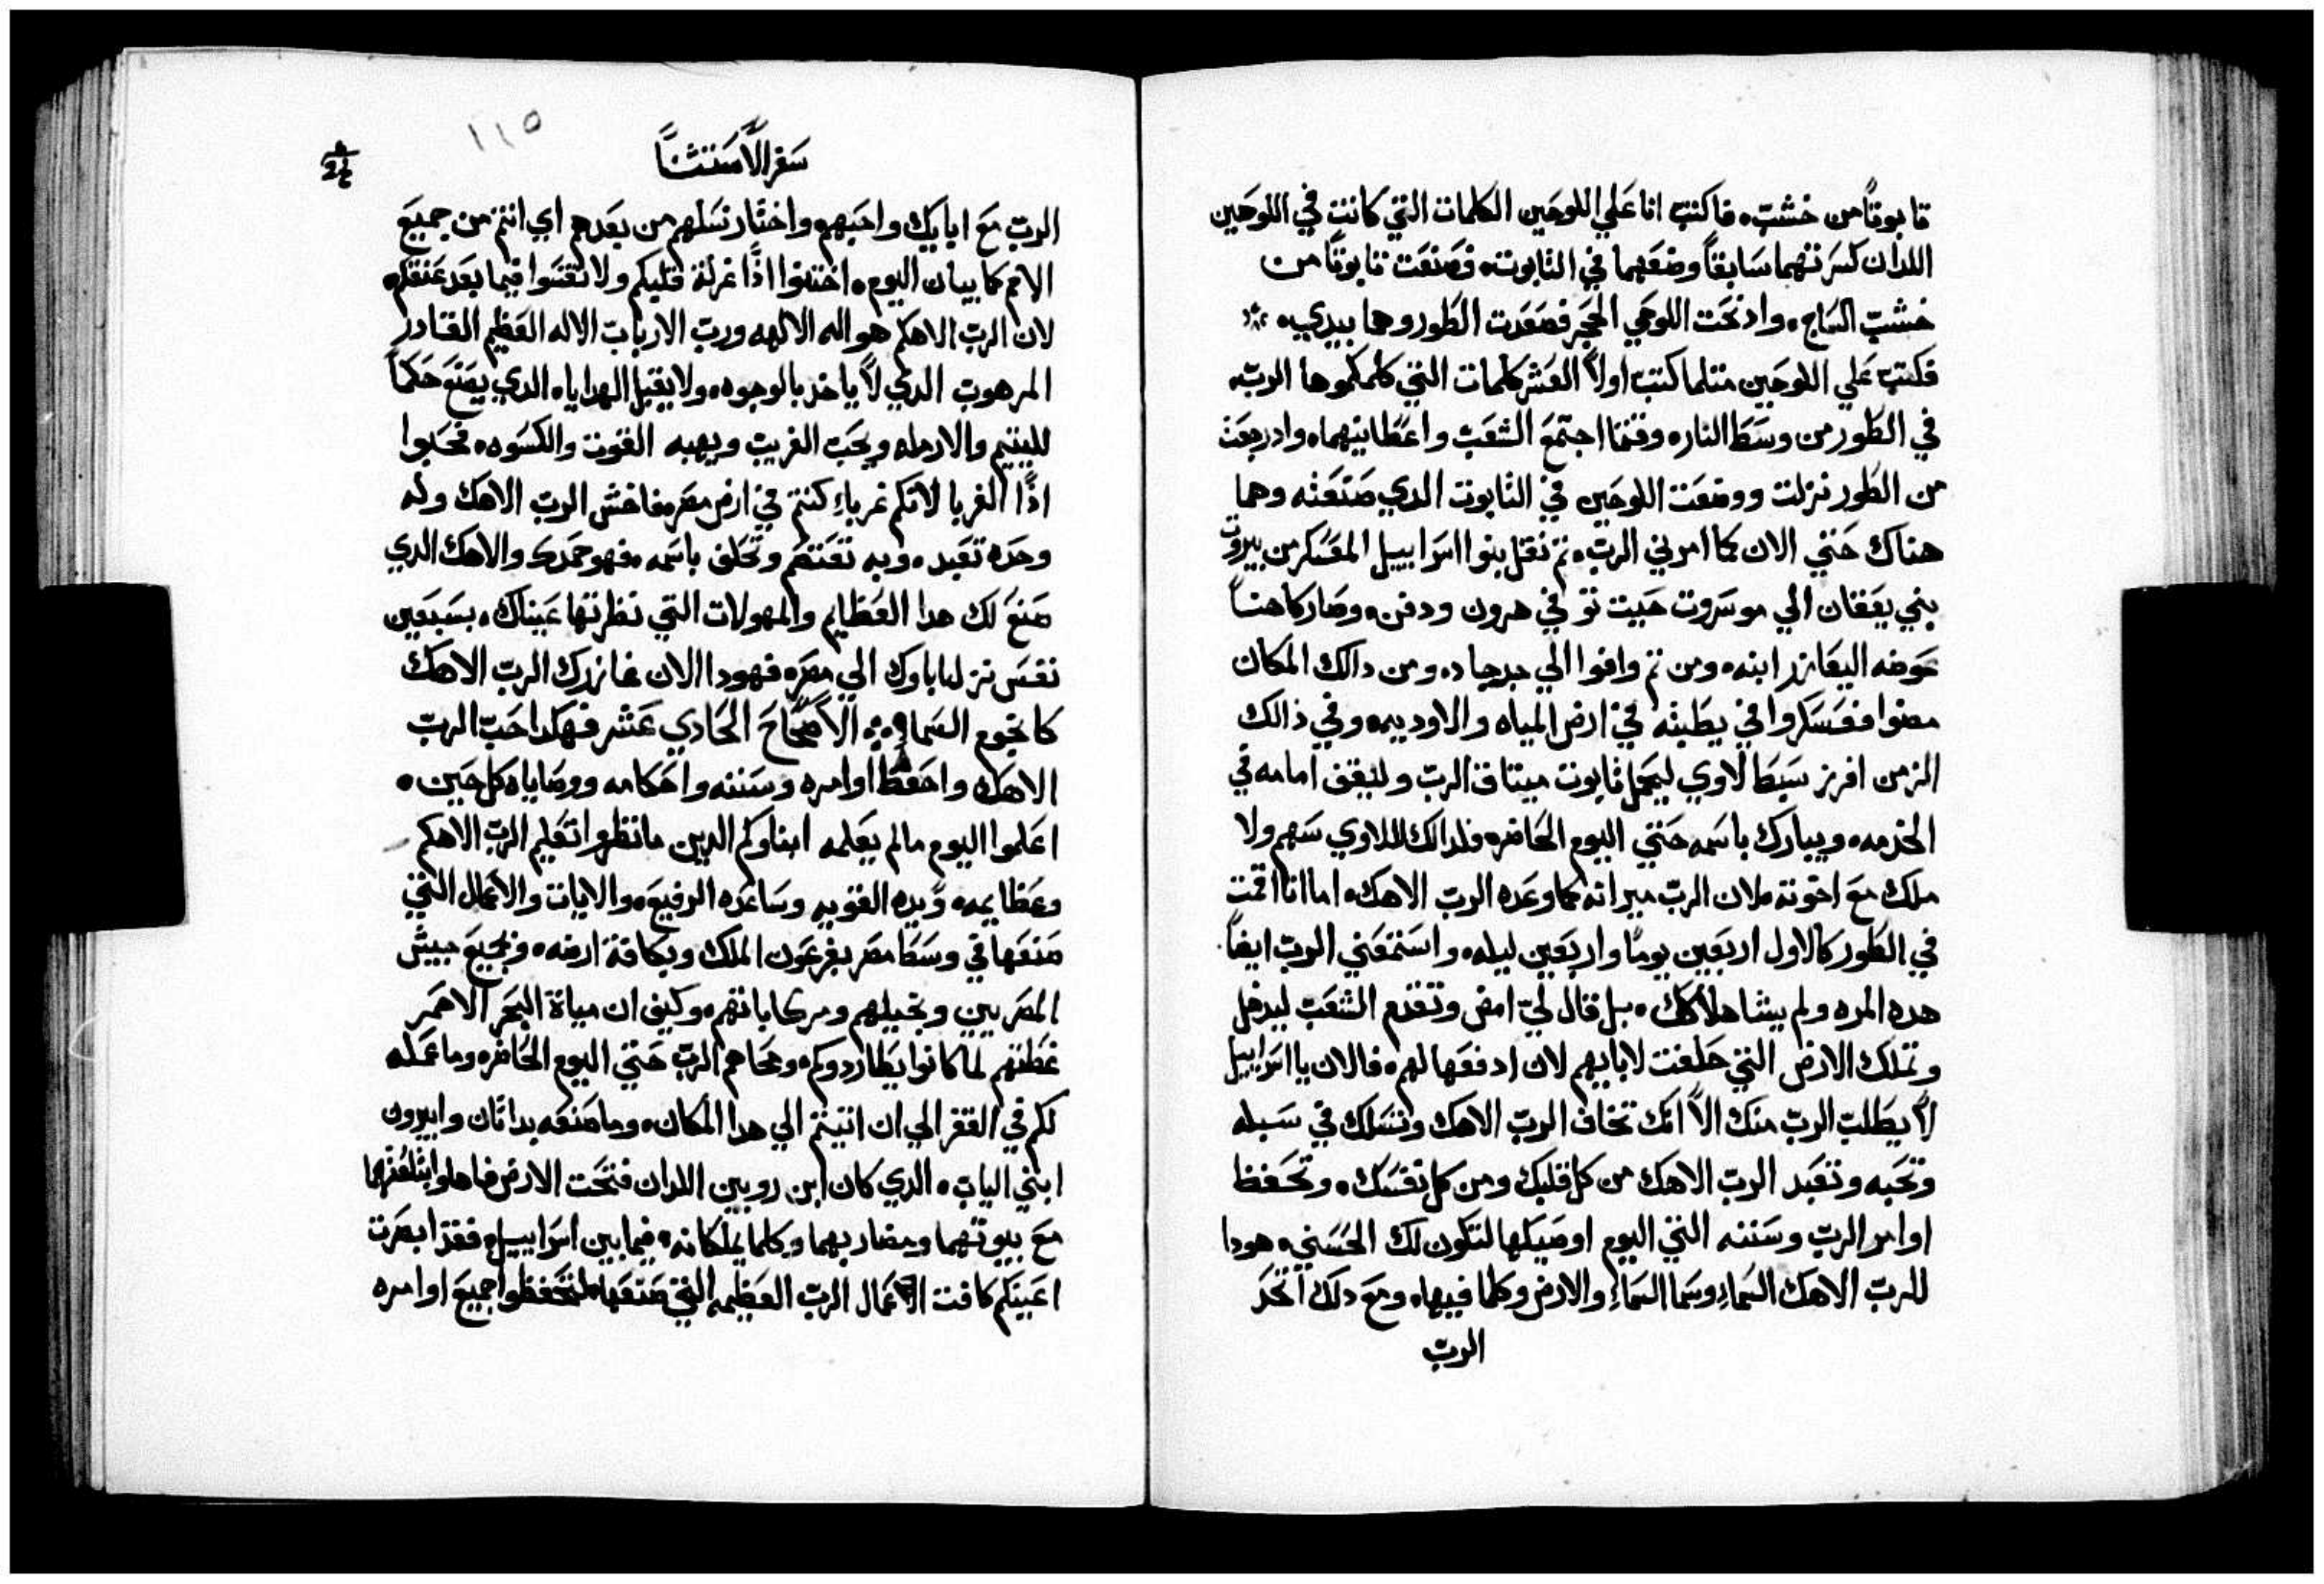 تابوتًا من خشب. فاكتب انا علي اللوحين الكلمات التي كانت في اللوحين
اللدان كسرتهما سابقًا وضعهما في التابوت. فصنعت تابوتًا من
خشب الساج. وادنحت اللوحي الحجر فصعدت الطور وهما بيدي.
فكتب علي اللوحين متلما كتب اولاً العشر كلمات التي كلمكموها الرب.
في الطور من وسط النار. وقتما اجتمع الشعب واعطانيهما. وادرجعت
من الطور نزلت ووضعت اللوحين في التابوت الدي صنعته وهما
هناك حتي الان كما امرني الرب. تم نقل بنوا اسراييل المعسكر من بيروت
بني يعقان الي موسروت حيت توفي هرون ودفن. وصار كاهنًا
عوضه اليعازر ابنه. ومن تم وافوا الي جدجاد. ومن دالك المكان
مضوا فعسكروا في يطبته في ارض المياه والاوديه. وفي ذالك
الزمن افرز سبط لاوي ليحمل تابوت ميتاق الرب وليقف امامه في
الخدمه. ويبارك باسمه حتي اليوم الحاضر. فلدالك للاوي سهم ولا
ملك مع اخوته. لان الرب ميراته كما وعده الرب الاهك. اما انا اقمت
في الطور كالاول اربعين يومًا واربعين ليله. واستمعني الرب ايضًا
هده المره ولم يشا هلاكك. بل قال لي امض وتقدم الشعب ليدخل
وتملك الارض التي حلفت لابايهم لان ادفعها لهم. فالان يا اسراييل
لا يطلب الرب منك الاّ انك تخاف الرب الاهك وتسلك في سبله
وتحبه وتعبد الرب الاهك من كل قلبك ومن كل نفسك. وتحفظ
اوامر الرب وسننه التي اليوم اوصيكها لتكون لك الحسني. هودا
للرب الاهك السماء وسما السماء والارض وكلما فيها. ومع دلك اتحد
الرب
سفر الاستثنا
١١٥
الرب مع ابايك واحبهم واختار نسلهم من بعدهم اي انتم من جميع
الامم كما بيان اليوم. اختنوا اذًا غرلة قلبكم ولا تقسوا فيما بعد عنقكم.
لان الرب الاهكم هو اله الالهه ورب الارباب الاله العظيم القادر
المرهوب الدي لا ياخد بالوجوه. ولا يقبل الهدايا. الدي يصنع حكمًا
لليتيم والارمله ويحب الغريب ويهبه القوت والكسوه. فحبوا
اذًا الغربا لانكم غرباء كنتم في ارض مصر. فاخش الرب الاهك وله
وحده تعبد. وبه تعتصم وتحلف باسمه. فهو حمدك والاهك الدي
صنع لك هدا العظايم والمهولات التي نظرتها عيناك. بسبعين
نفس نزل اباوك الي مصر. فهودا الان غازرك الرب الاهك
كانجوم السما. الاصحاح الحادي عشر فهكدا حب الرب
الاهك واحفظ اوامره وسننه واحكامه ووصاياه كل حين.
اعلموا اليوم مالم يعلمه ابناوكم الدين ما نظروا تعليم الرب الاهكم
وعظايمه. ويده القويه وساعده الرفيع. والايات والاعمال التي
صنعها في وسط مصر بفرعون الملك وبكافة ارضه. وبجميع جيش
المصريين وبخيلهم ومركاباتهم. وكيف ان مياة البحر الاحمر
غطتهم لما كانوا يطاردوكم. ومحاهم الرب حتي اليوم الحاضر. وما عمله
لكم في القفر الي ان اتيتم الي هدا المكان. وما صنعه بداتان وابيرون
ابني الياب. الدي كان ابن روبين اللدان فتحت الارض فاها وابتلعتهما
مع بيوتهما ومضاربهما وكلما يملكانه. فيما بين اسراييل. فقد ابصرت
اعينكم كافت الاعمال الرب العظيمه التي صنعها. لتحفظوا جميع اوامره